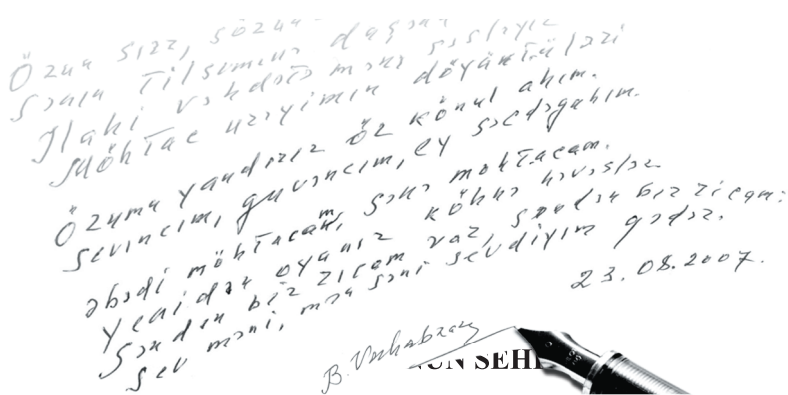 Özün sirr, sözün
Sənin tilsiminə
İlahi vəhdətə məni səsləyir
Möhtac ürəyimin döyüntüləri
Özümü yandırır öz könül ahım.
Sevincim, güvəncim, ey səcdəgahım.
Əbədi möhtacam, sənə möhtacam.
Yenidən oyanır köhnə həvəslər
Səndən bir ricam var, səndən bir ricam:
Sev məni, mən səni sevdiyim qədər.
23.08.2007.
B. Vahabzadə
NUN SEH